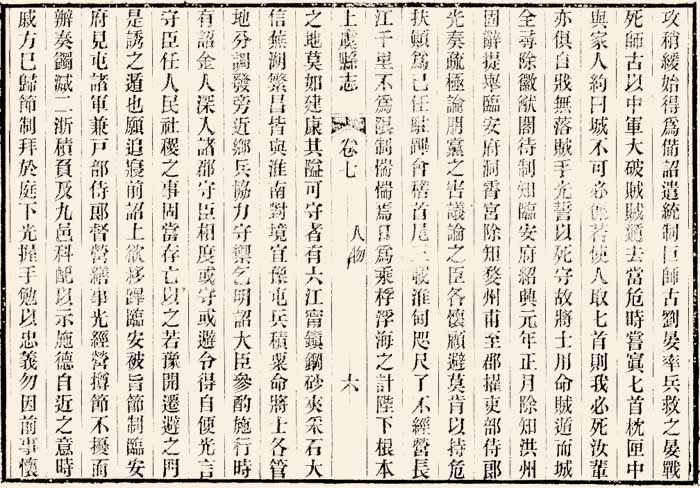 攻稍緩始得爲備詔遣統制巨師古劉晏率兵救之晏戰
死師古以中軍大破賊賊遁去當危時嘗寘匕首枕匣中
與家人約曰城不可必保若使人取匕首則我必死汝輩
亦俱自戕無落賊手光誓以死守故將士用命賊遁而城
全尋除徽猷閣待制知臨安府紹興元年正月除知洪州
固辭提舉臨安府洞霄宮除知婺州甫至郡擢吏部侍郎
光奏疏極論朋黨之害議論之臣各懷顧避莫肯以持危
扶顚爲己任駐蹕會稽首尾三載淮甸咫尺了不經營長
江千里不爲限制惴惴焉日爲乘桴浮海之計陛下根本
上虞縣志
卷七
人物
六
之地莫如建康其隘可守者有六江甯鎭鋼砂夾采石大
信蕪湖繁昌皆與淮南對境宜豫屯兵積粟命將士各管
地分調發旁近鄉兵協力守禦乞明詔大臣參酌施行時
有詔金人深入諸郡守臣相度或守或避令得自便光言
守臣任人民社稷之事固當存亡以之若豫開遷避之門
是誘之遁也願追寢前詔上欲移蹕臨安被旨節制臨安
府見屯諸軍兼戸部侍郎督營繕事光經營撙節不擾而
辦奏蠲減二浙積負及九邑科配以示施德自近之意時
戚方已歸節制拜於庭下光握手勉以忠義勿因前事懷